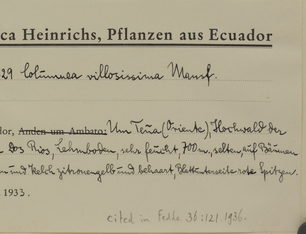 ca Heinrichs, Pflanzen aus Ecuador
29 Columnea villosissima Mansf.
or, Anden um Ambato: Um Tena (Oriente), Hochwald der
Dos Rios, Lehmboden, sehr feucht, 700m, selten, auf Bäumen
und Kelch zitronengelb und behaart, Blattunterseite rote Spitzen.
1933.
cited in Fedde 36:121 1936.